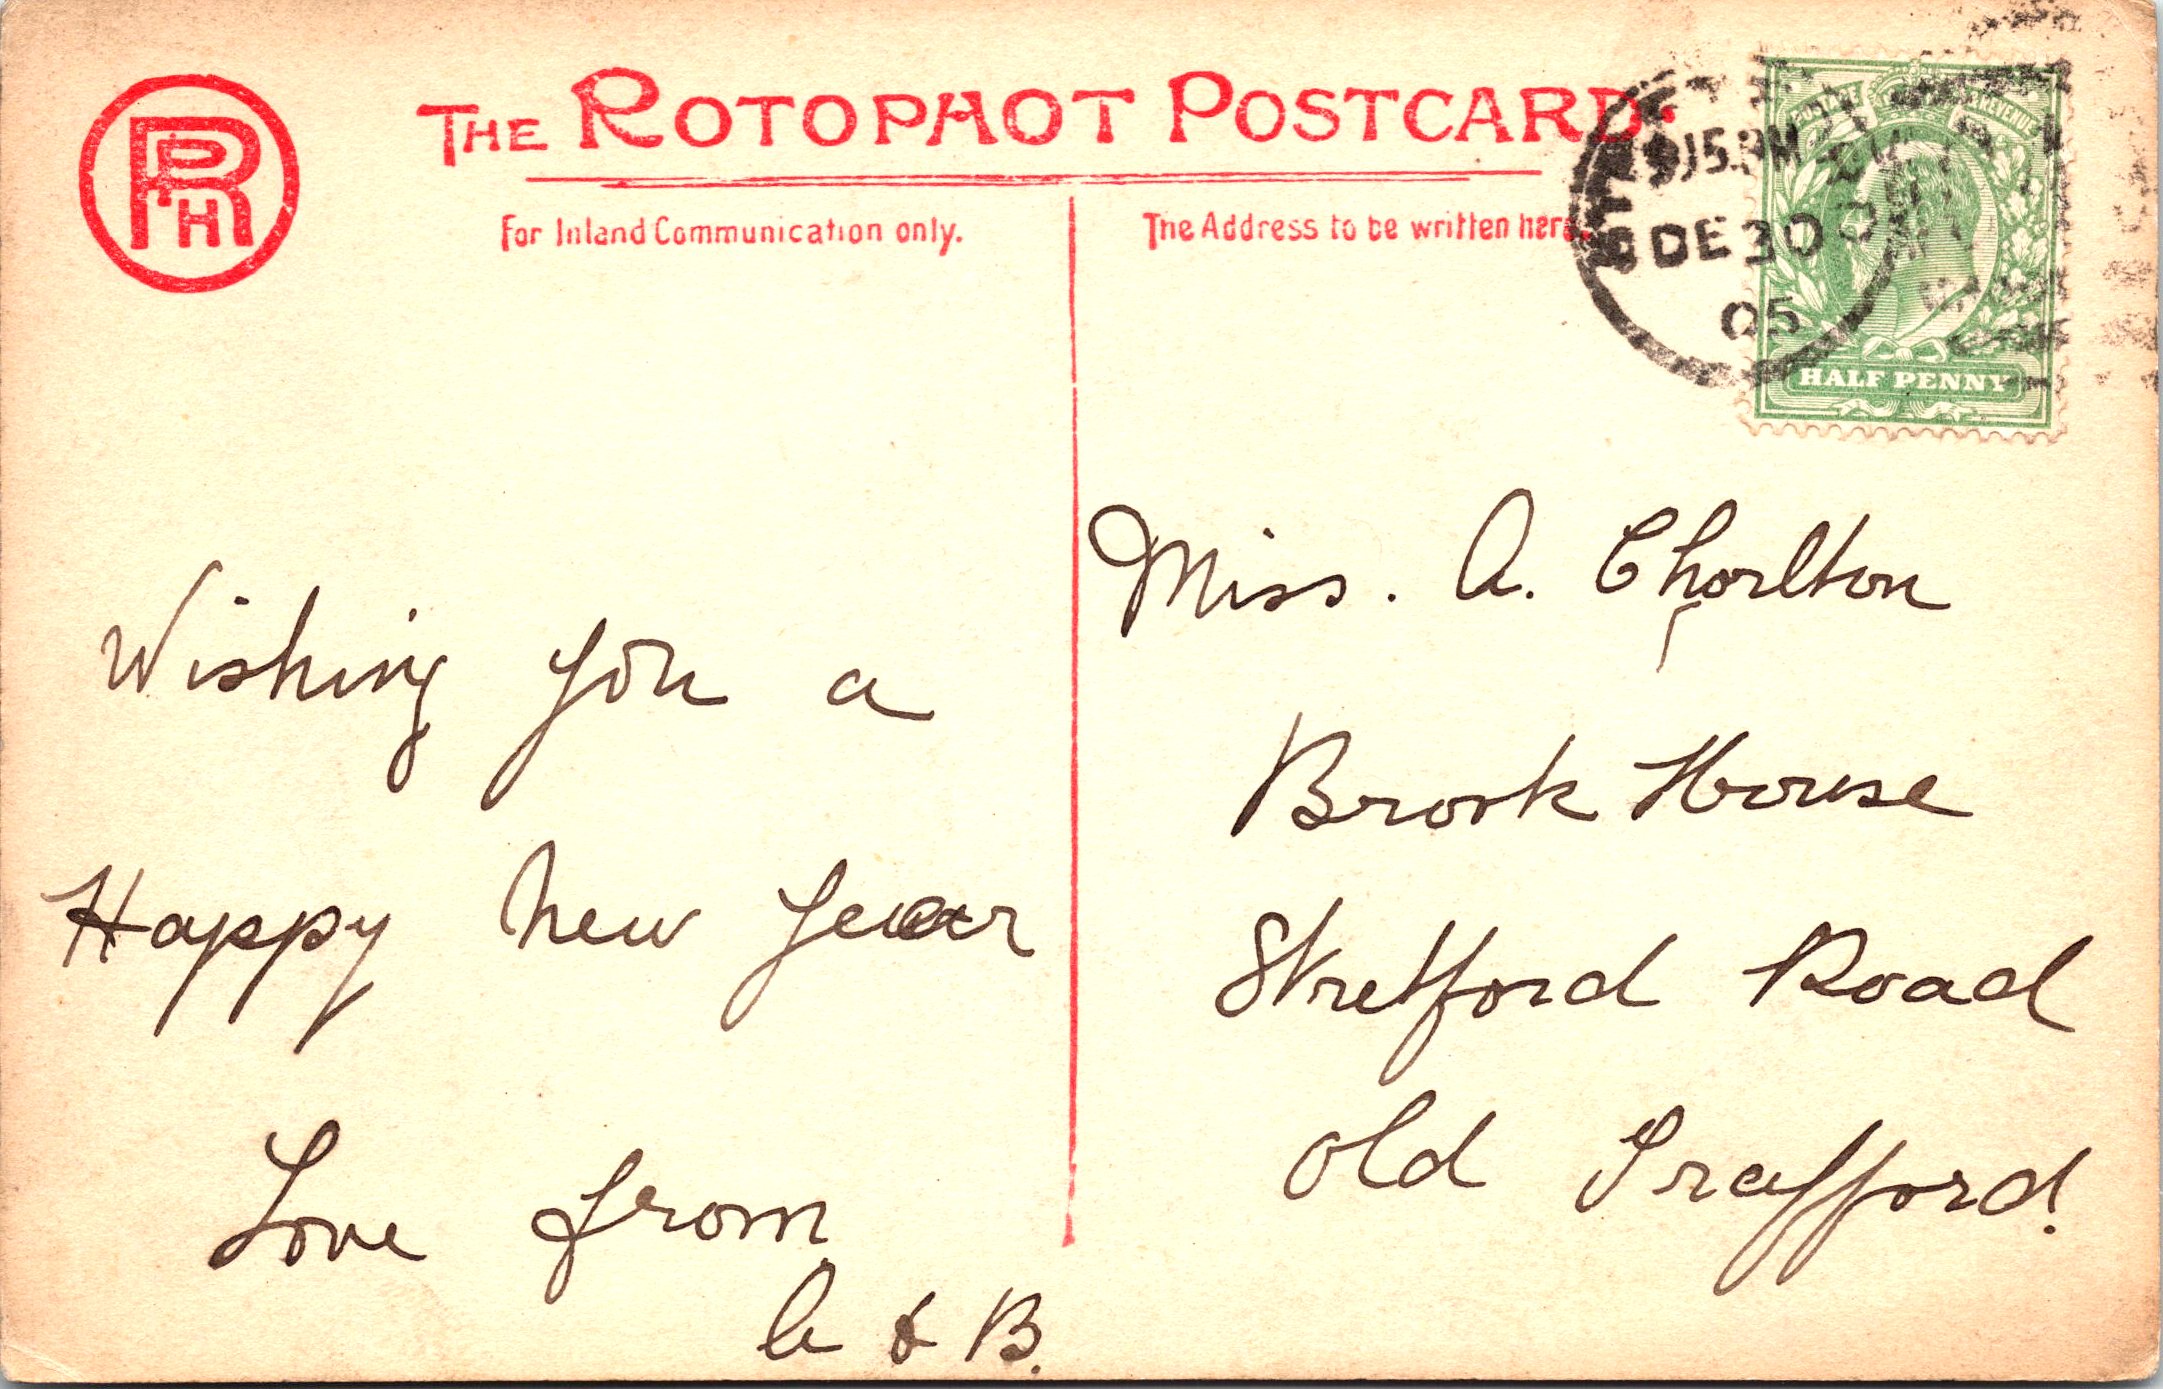 RPH
THE ROTOPHOT POSTCARD.
For Inland Communication only.
The Address to be written here.
9.15.PM
DE 30
05
POSTAGE
REVENUE
HALF PENNY
Wishing you a
Happy New Year
Love from
A & B.
Miss. A. Chorlton
Brook House
Stretford Road
Old Trafford.